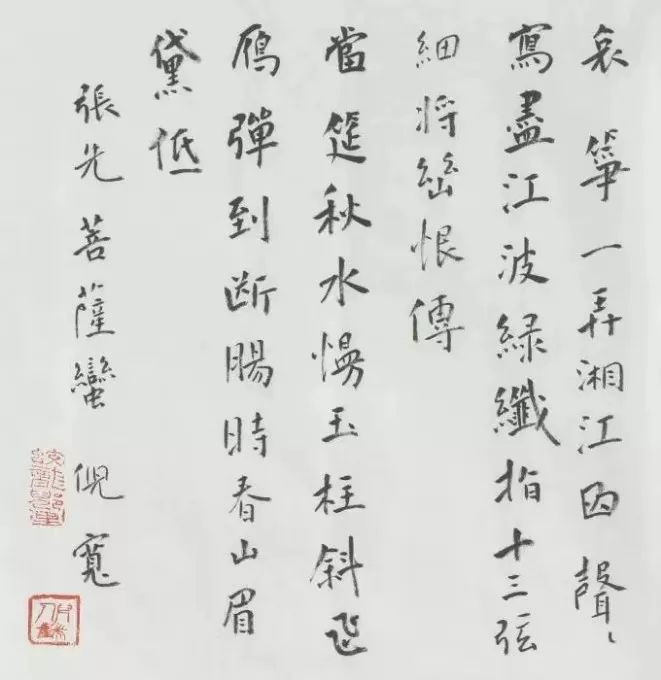 哀箏一弄湘江曲聲〻
寫盡江波綠纖指十三弦
細将幽恨傳
當筵秋水慢玉柱斜飛
鴈彈到断腸時春山眉
黛低
張先菩薩蠻 倪寬